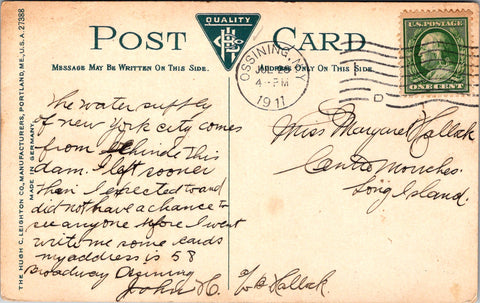 THE HUGH C. LEIGHTON CO., MANUFACTURERS, PORTLAND, ME., U.S.A. 27388
MADE IN GERMANY.
POST CARD
QUALITY
MESSAGE MAY BE WRITTEN ON THIS SIDE.
ADDRESS ONLY ON THIS SIDE.
OSSINING, N.Y.
4-PM
1911
D
U.S. POSTAGE
ONE CENT
The water supply
of new York city comes
from behinde this
dam. I left sooner
then I expected to and
did not have a chance to
see anyone before I went
write me some cards
my address is 58
Broadway Ossining
John H.
Miss Margaret Hallock
Centre Moriches.
Long Island.
Hallock